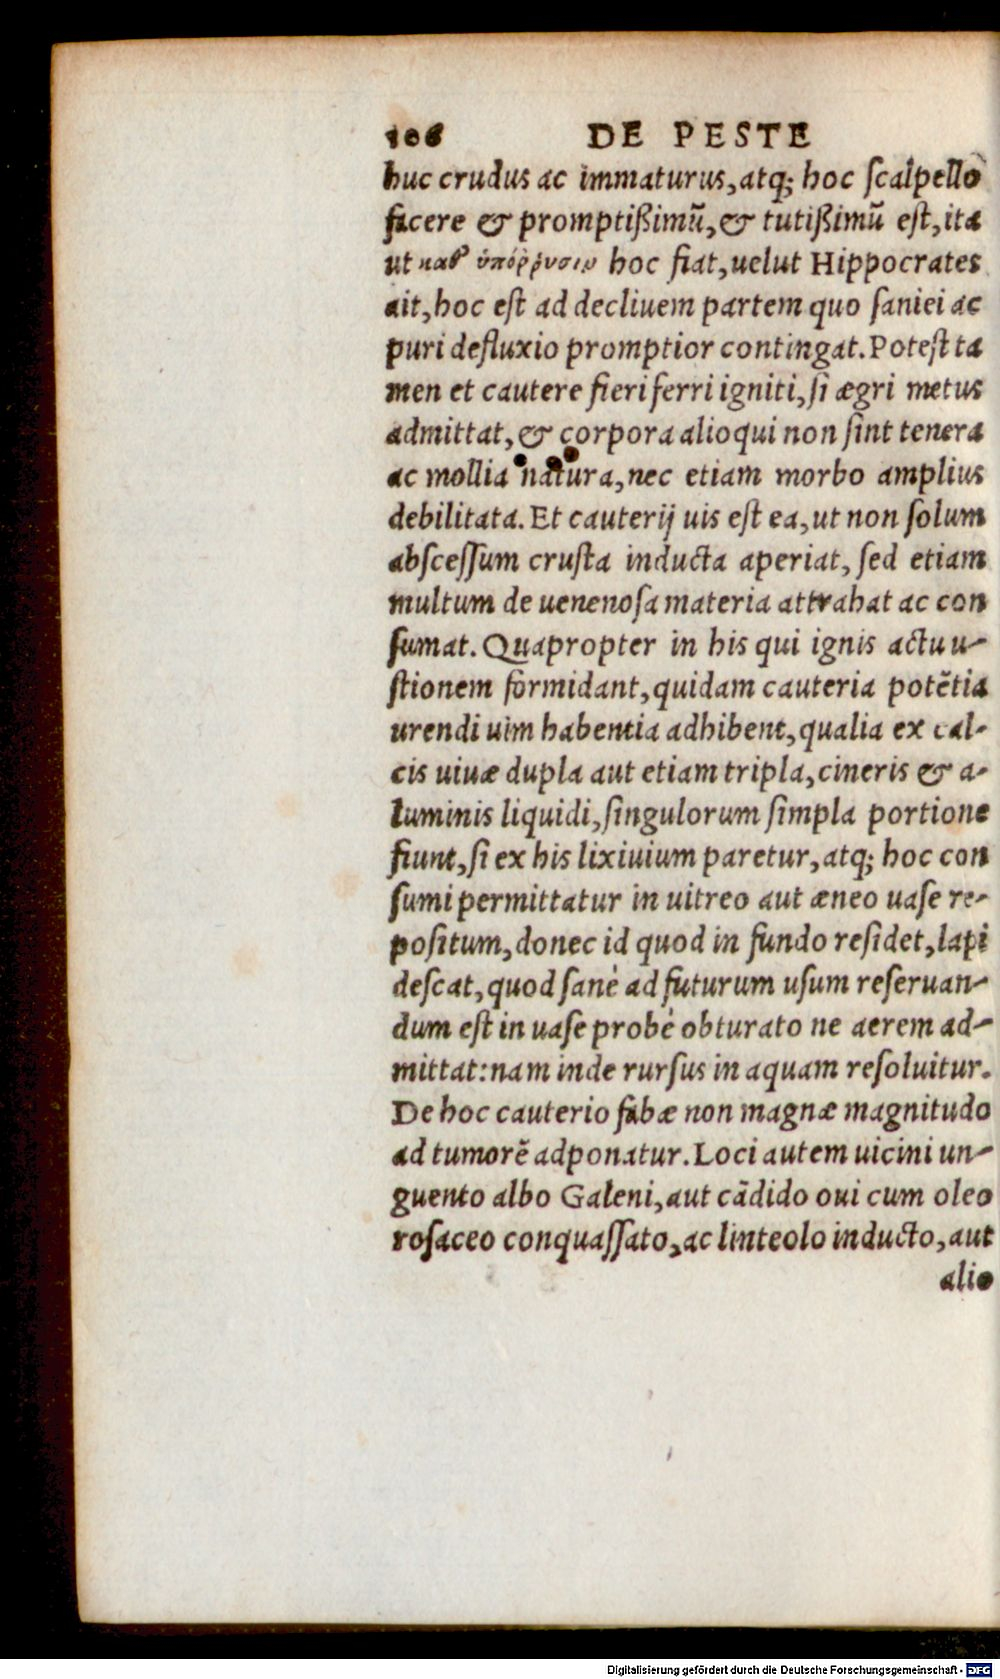 106 DE PESTE
huc crudus ac immaturus, atq; hoc ſcalpello
facere & promptißimũ, & tutißimũ eſt, ita
ut καθ' ὑπόῤῥυσιν hoc fiat, uelut Hippocrates
ait, hoc eſt ad decliuem partem quo ſaniei ac
puri defluxio promptior contingat. Poteſt ta
men et cautere fieri ferri igniti, ſi ægri metus
admittat, & corpora alioqui non ſint tenera
ac mollia natura, nec etiam morbo amplius
debilitata. Et cauterij uis eſt ea, ut non ſolum
abſceſſum cruſta inducta aperiat, ſed etiam
multum de uenenoſa materia attrahat ac con
ſumat. Quapropter in his qui ignis actu u-
ſtionem formidant, quidam cauteria potẽtia
urendi uim habentia adhibent, qualia ex cal-
cis uiuæ dupla aut etiam tripla, cineris & a-
luminis liquidi, ſingulorum ſimpla portione
fiunt, ſi ex his lixiuium paretur, atq; hoc con
ſumi permittatur in uitreo aut æneo uaſe re-
poſitum, donec id quod in fundo reſidet, lapi
deſcat, quod ſanè ad futurum uſum reſeruan-
dum eſt in uaſe probè obturato ne aerem ad-
mittat: nam inde rurſus in aquam reſoluitur.
De hoc cauterio fabæ non magnæ magnitudo
ad tumorẽ adponatur. Loci autem uicini un-
guento albo Galeni, aut cãdido oui cum oleo
roſaceo conquaſſato, ac linteolo inducto, aut
alio
Digitalisierung gefördert durch die Deutsche Forschungsgemeinschaft - DFG